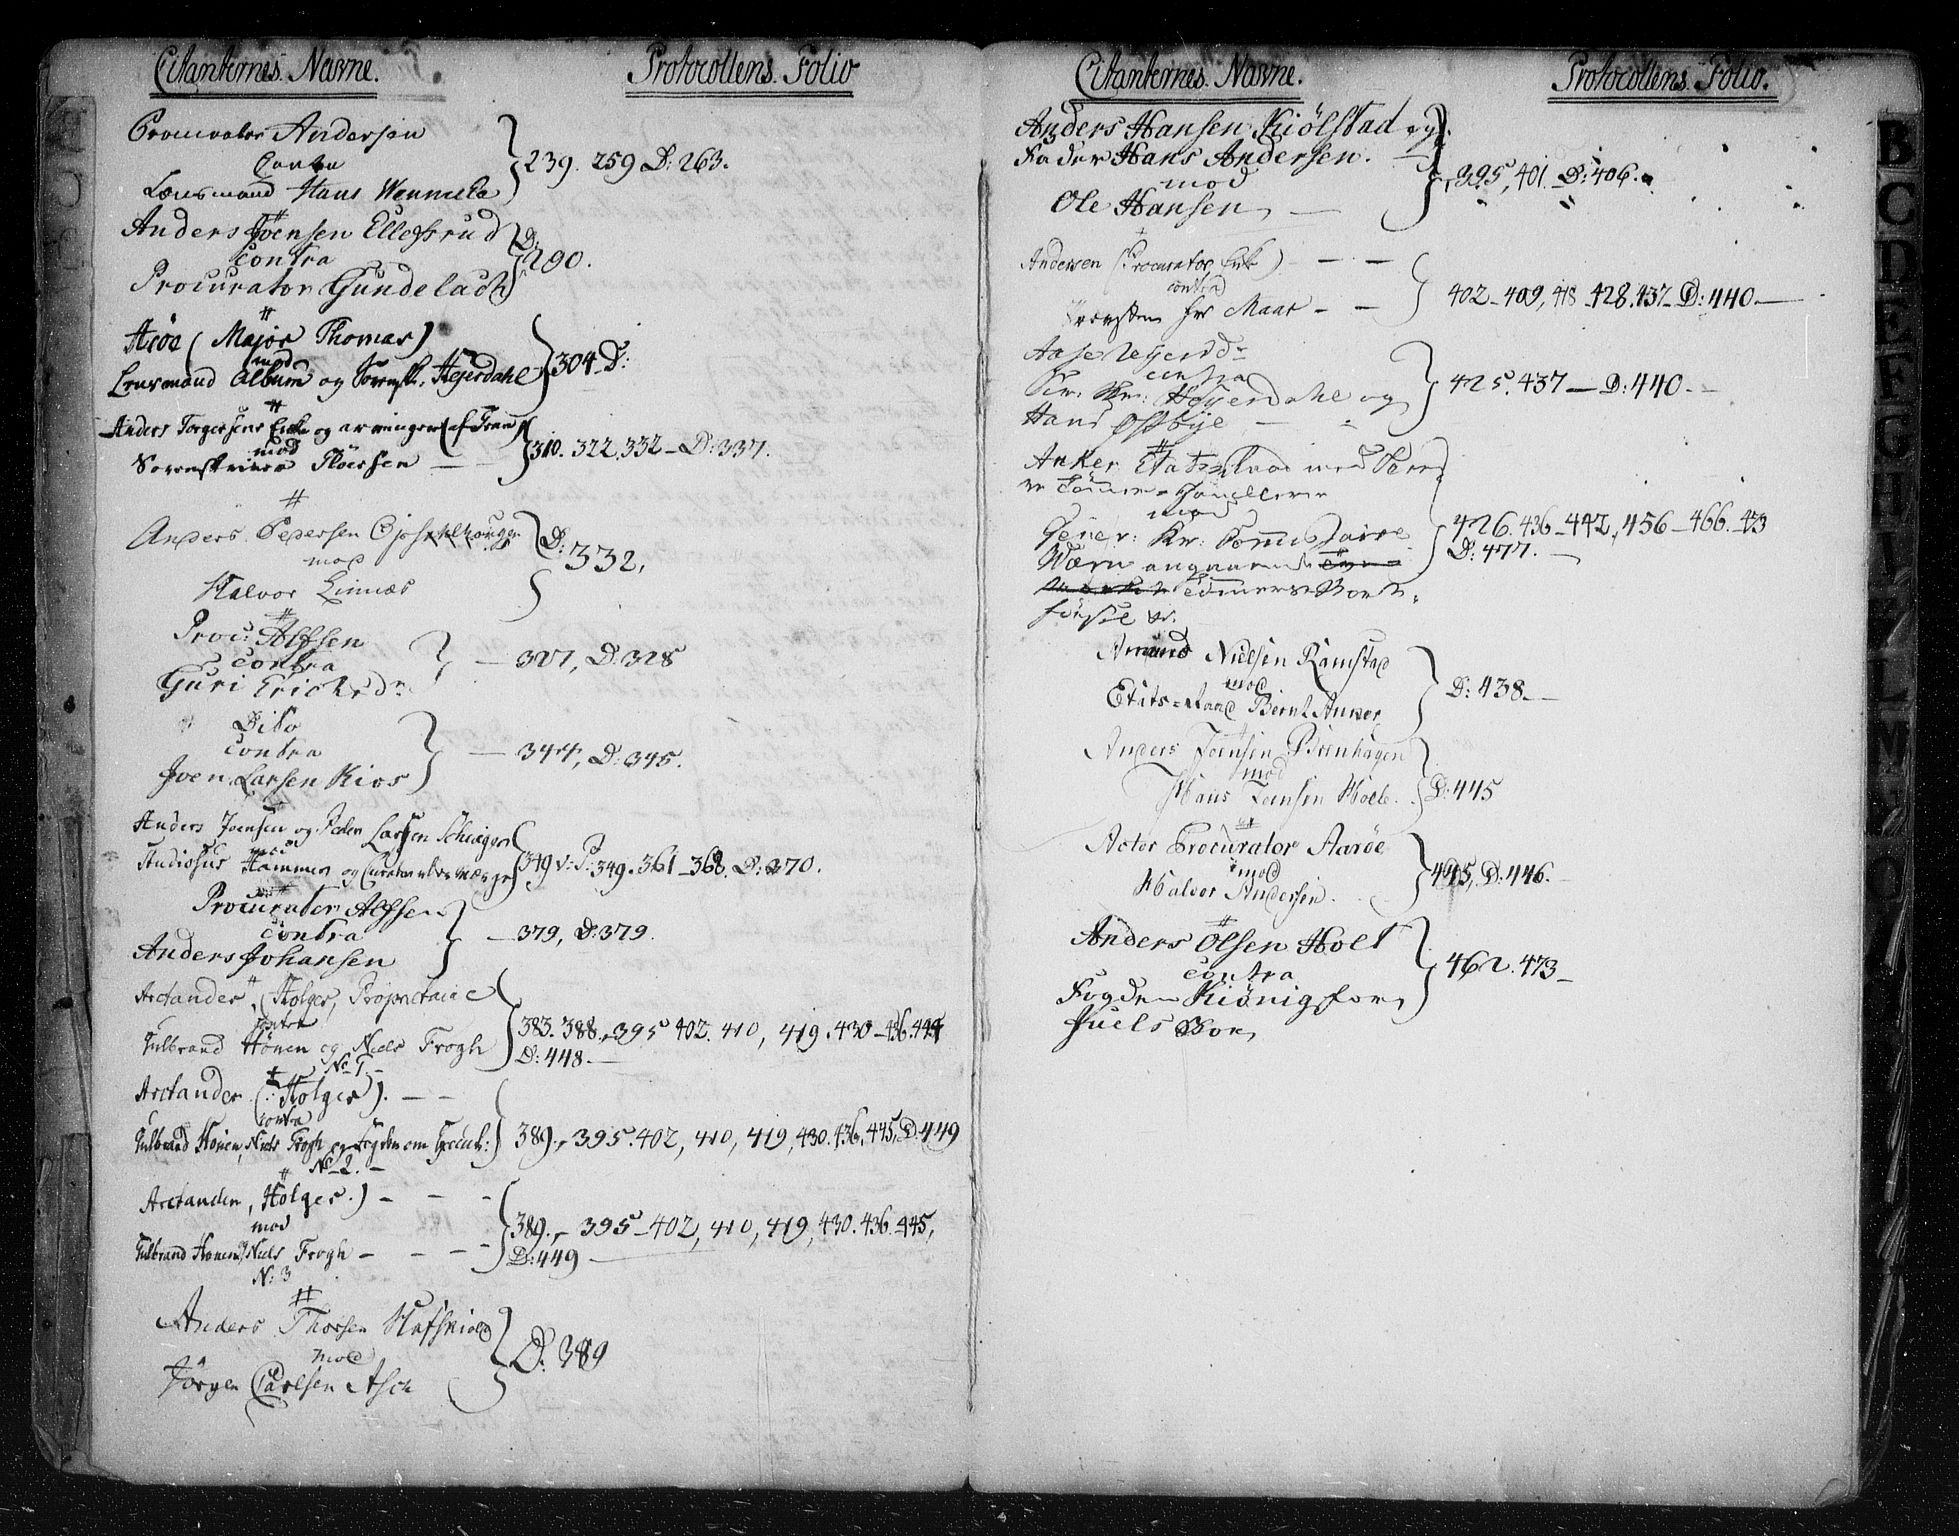 Citanternes Navne. Protocollens Folio
Procurator Andersen
Contra
Lensmand Hans Wennicke
239. 259 D: 263.
#
Anders Joensen Ellefsrud
contra
Procurator Gundelach
D: 290.
#
Aröe (Major Thomas)
mod
Lensmand Album og Sorenskr. Heyerdahl
304 D:
#
Anders Torgersens Enke og arvinger (af Fram)
mod
Sorenskriver Flörsen
310. 322, 332 - D: 337.
#
Anders Pedersen
mod
Halvor Linnæs
D: 332,
#
Proc: Alfsen
contra
Guri Ericksdr
327, D: 328
Dito
contra
Joen Larsen Kios
344, D: 345.
Anders Joensen og Peder Larsen
mod
Studiosus Hammer og
349 v: P: 349. 361 - 368. D: 370.
Procurator Alfsen
contra
Anders Johansen
379, D: 379.
#
Arctander, (Holger, Proprietaire
contra
Gulbrand Hönen og Niels Frogh
No 1.
383. 388, 395 402. 410, 419. 430 - 436. 444
D: 448.
Arctander (: Holger).
contra
Gulbrand Hönen, Niels Frogh og Fogden om Execut:
No 2.
389., 395. 402, 410, 419, 430. 436, 445, D: 449
#
Arctander, Holger.)
mod
Gulbrand Hönen, Niels Frogh
N: 3
389., 395 - 402, 410, 419, 430. 436. 445,
D: 449
#
Anders Thorsen
mod
Jörgen Carlsen Asch
D: 389
Citanternes Navne. Protocollens Folio.
Anders Hansen Kiölstad og
Fader Hans Andersen.
mod
Ole Hansen
395, 401 D: 406.
Andersen (Procurator
contra
hr Maar
402 - 409, 418 - 428. 437 - D: 440
Aase
contra
Heyerdahl og
Hans Ostbye
425. 437 - D: 440.
#
Anker Etatsraad med
mod
Gener: Kr: Commissaire
Wærn angaaende
Tömmer
426. 436 - 442, 456 - 466. 473
D: 477.
Amund Nielsen Ramstad
mod
Etats-Raad Bernt Anker
D: 438.
Anders Joensen Brenhagen
mod
Hans Jensen Holle.
D: 445
#
Actor Procurator Aaröe
mod
Halvor Andersen.
445, D: 446.
#
Anders Olsen Holt
contra
Fogden Kiönig for
Juels Boe,
462. 473
B
C
D
E
F
G
H
I
L
M